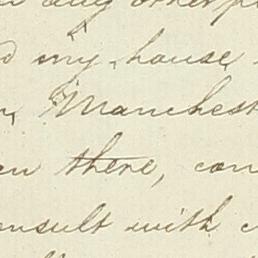 any other
my house
Manchest
there, con
onsult with